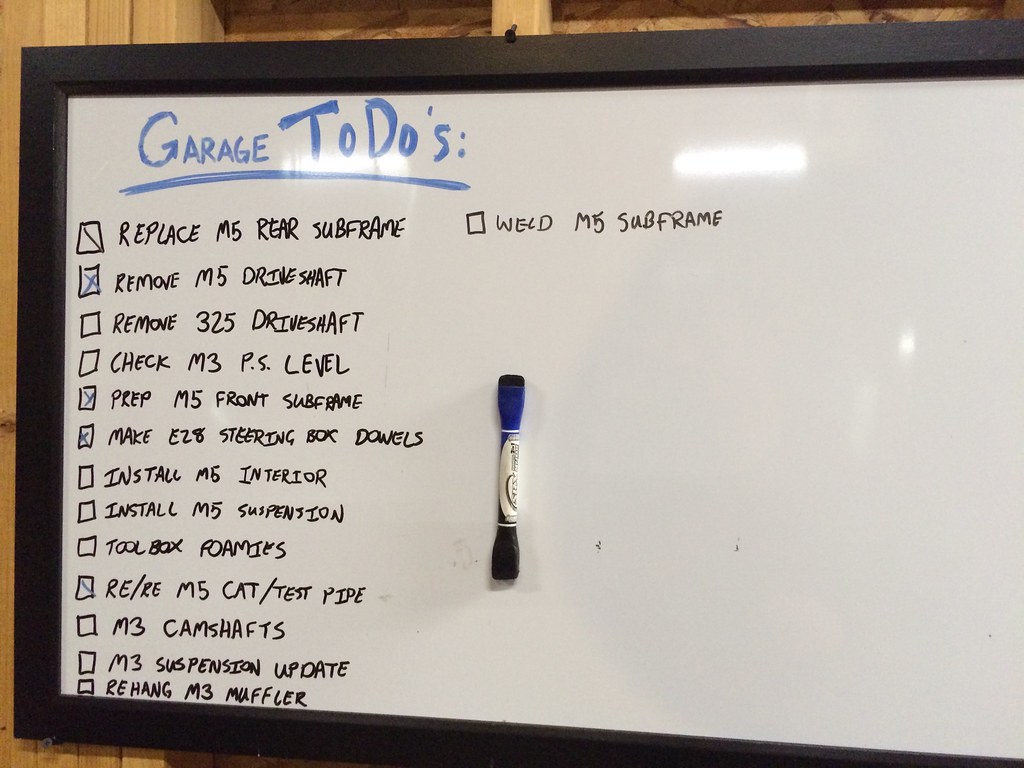 GARAGE TODO'S:
REPLACE M5 REAR SUBFRAME
REMOVE M5 DRIVESHAFT
REMOVE 325 DRIVESHAFT
CHECK M3 P.S. LEVEL
PREP M5 FRONT SUBFRAME
MAKE E28 STEERING BOX DOWELS
INSTALL M5 INTERIOR
INSTALL M5 SUSPENSION
TOOLBOX FOAMIES
RE/RE M5 CAT/TEST PIPE
M3 CAMSHAFTS
M3 SUSPENSION UPDATE
REHANG M3 MUFFLER
WELD M5 SUBFRAME